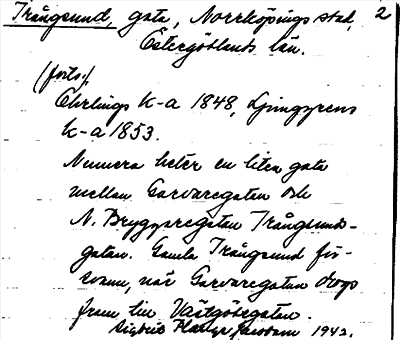 Trångsund, gata, Norrköpings stad, 2
Östergötlands län.
(forts.)
Ehrlings k-a 1848, Ljunggrens
k-a 1853.
Numera heter en liten gata
mellan Garvaregatan och
N. Bryggaregatan Trångsunds-
gatan. Gamla Trångsund för-
svann, när Garvaregatan drogs
fram till Västgötegatan.
Sigbrit Plænge Jacobson 1942.